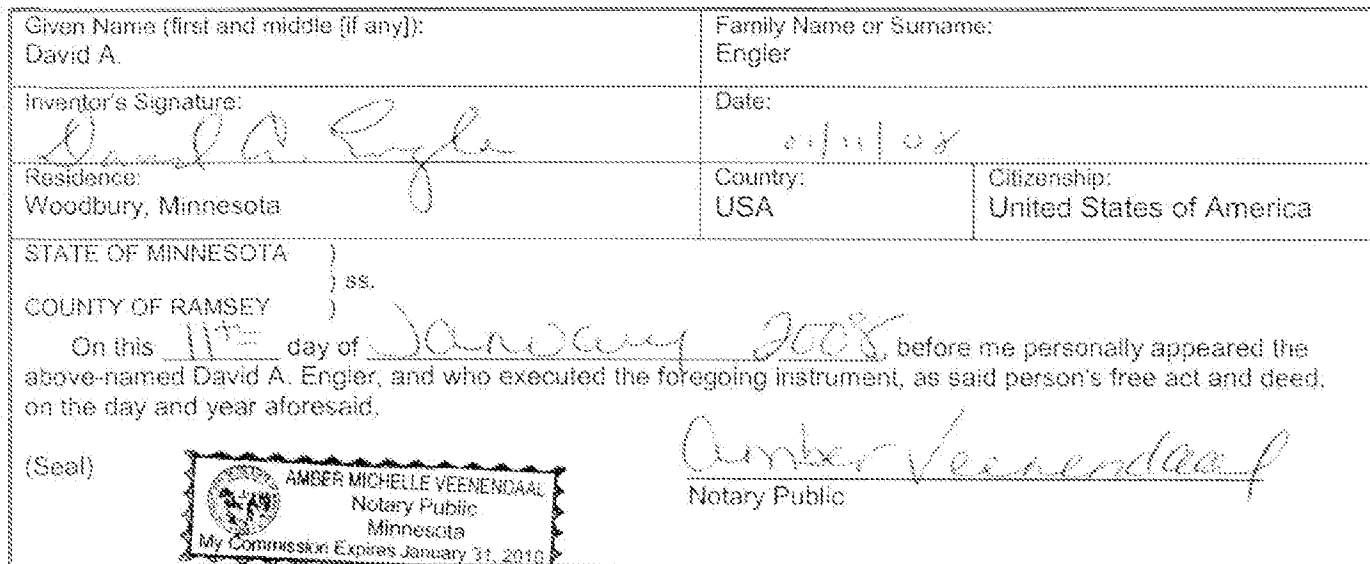 Given Name (first and middle [if any]): Family Name or Surname:
David A. Engler
Inventor's Signature: Date:
David A. Engler 01/11/08
Residence: Country: Citizenship:
Woodbury, Minnesota USA United States of America
STATE OF MINNESOTA )
) ss.
COUNTY OF RAMSEY )
On this 11th day of January 2008, before me personally appeared the
above-named David A. Engler, and who executed the foregoing instrument, as said person's free act and deed,
on the day and year aforesaid.
(Seal)
AMBER MICHELLE VEENENDAAL
Notary Public
Minnesota
My Commission Expires January 31, 2010
Amber Veenendaal
Notary Public